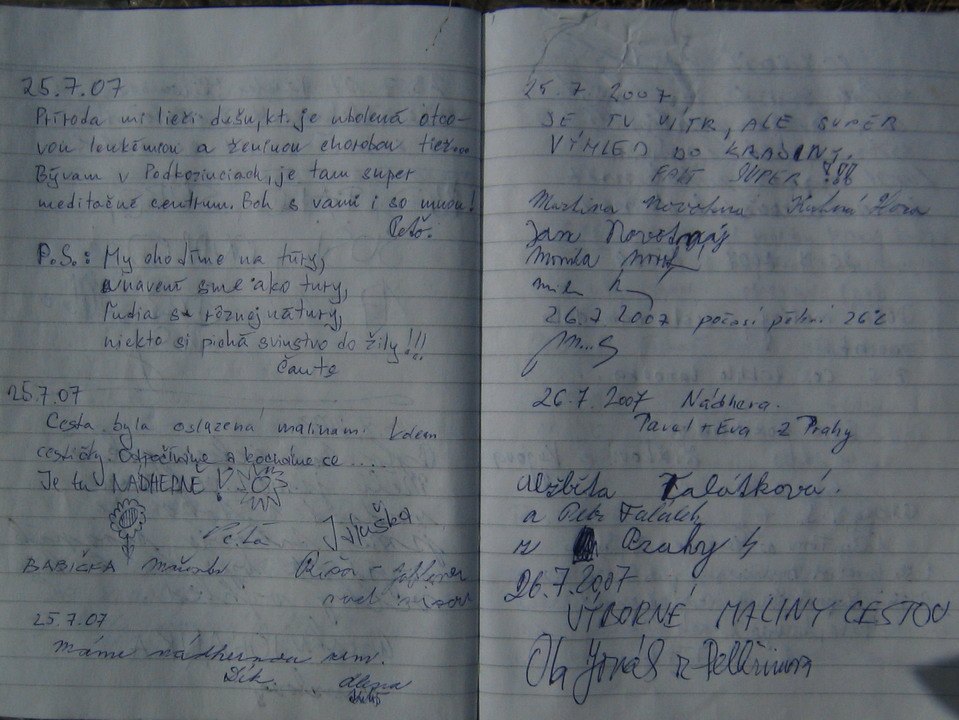 25.7.07
Príroda mi lieči dušu, kt. je ubolená otco-
vou leukémiou a ženinou chorobou tiež...
Bývam v Podkozinciach, je tam super
meditačné centrum. Boh s vami i so mnou!
Peťo.
P.S.: My chodíme na túry,
unavení sme ako tury,
ľudia sú rôznej nátury,
niekto si pichá svinstvo do žily!!!
Čaute
25.7.07
Cesta byla oslazená malinami kolem
cestičky. Odpočíváme a kocháme se .....
Je tu NÁDHERNĚ!
Péťa
BABIČKA
nad
25.7.07
Máme nádhernou zem.
Dík.
25.7.2007
JE TU VÍTR, ALE SUPER
VÝHLED DO KRAJINY.
FAKT SUPER!!!
Martina Novotná
Jan Novotný
26.7.2007 počasí pěkný 26°C
26.7.2007 Nádhera.
Pavel + Eva z Prahy
Alžběta Falátková.
a Petr Falátek
z Prahy 4
26.7.2007
VÝBORNÉ MALINY CESTOU
Ola Jonáš z Pelhřimova